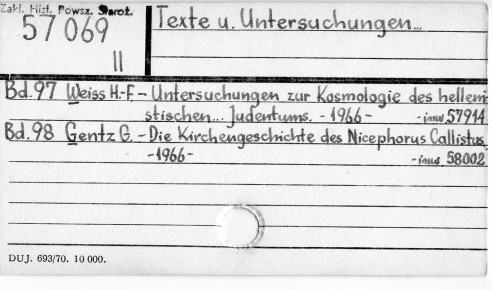 Zakł. Hist. Powsz. Staroż.
57069
II
Texte u. Untersuchungen...
Bd. 97 Weiss H.-F. - Untersuchungen zur Kosmologie des helleni-
stischen... Judentums. - 1966 - - inw 57914
Bd. 98 Gentz G. - Die Kirchengeschichte des Nicephorus Callistus
- 1966 - - inw 58002
DUJ. 693/70. 10 000.